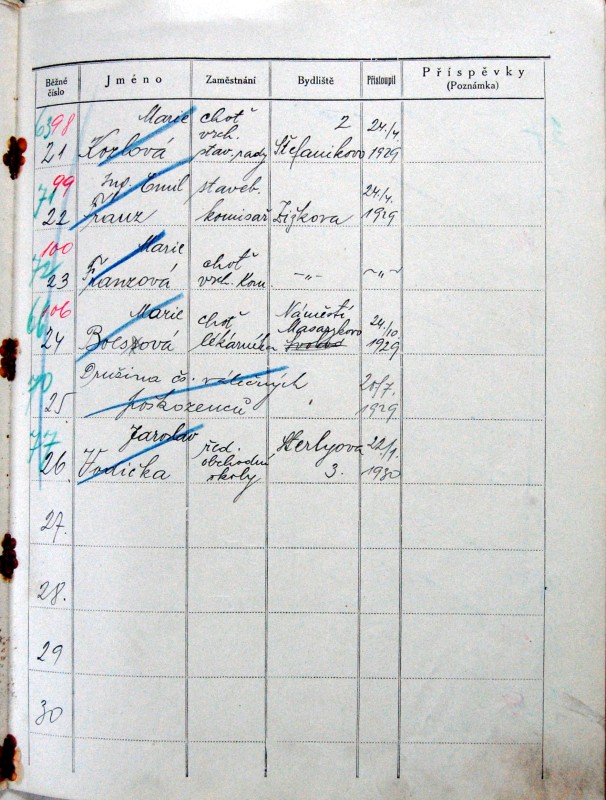 Běžné číslo Jméno Zaměstnání Bydliště Přistoupil Příspěvky (Poznámka)
63 98 Marie choť 2 24./4.
21 Kozlová vrch. stav. rady Štefanikova 1929
71 99 Ing. Emil staveb. 24./4.
22 Franz komisař Žižkova 1929
72 100 Marie choť
23 Franzová vrch. kom. –„– –„–
66 106 Marie choť Náměstí Masarykovo 24./10.
24 lékárníka 1929
70 Družina čs. válečných 20/7.
25. poškozenců „ 1929
77 Jaroslav řed. 22./1.
26. obchodní školy 3. 1930
27.
28.
29
30